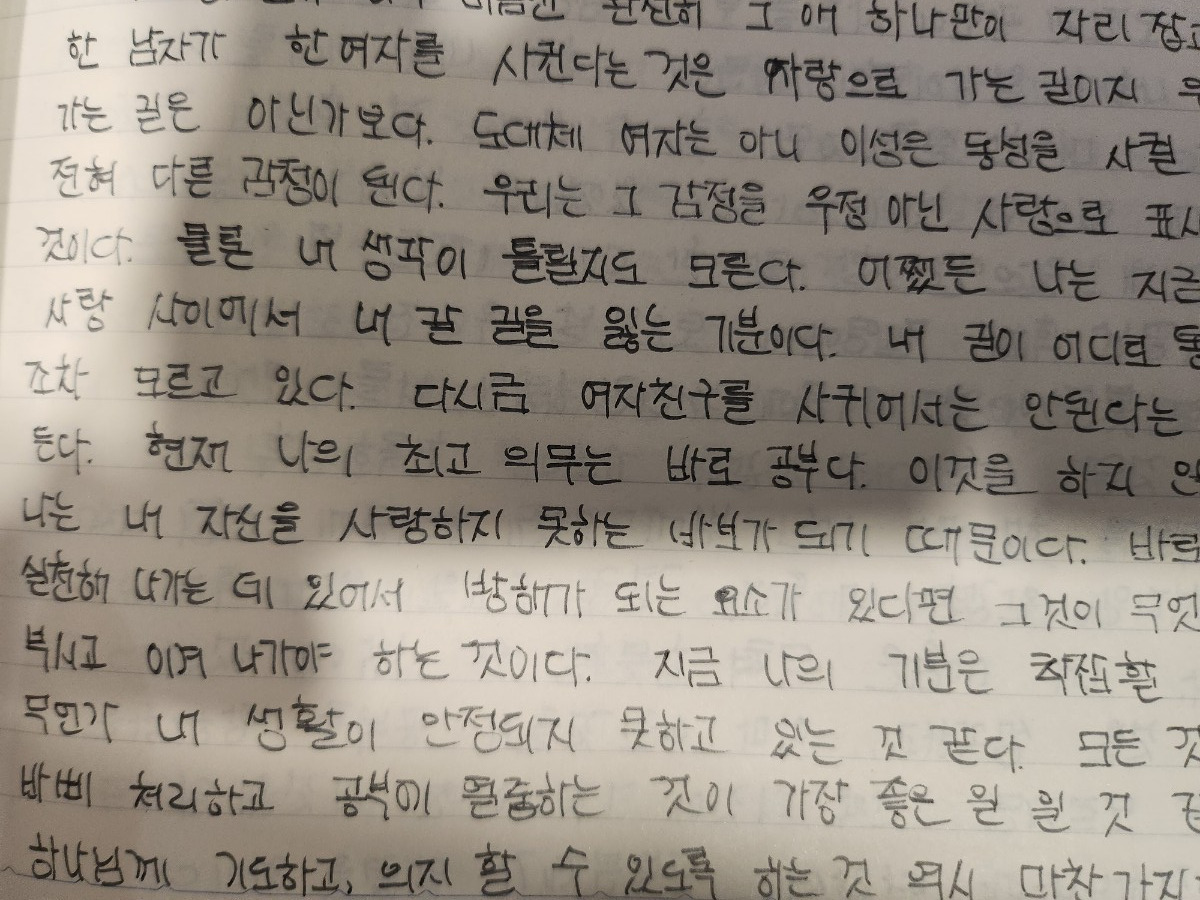 그 애 하나만이 자리 잡고
한 남자가 한 여자를 사귄다는 것은 사랑으로 가는 길이지 우
가는 길은 아닌가보다. 도대체 여자는 아니 이성은 동성을 사귈
전혀 다른 감정이 된다. 우리는 그 감정을 우정 아닌 사랑으로 표시
것이다. 물론 내 생각이 틀릴지도 모른다. 어쨌든 나는 지금
사랑 사이에서 내 갈 길을 잃는 기분이다. 내 길이 어디로
조차 모르고 있다. 다시금 여자친구를 사귀어서는 안된다는
든다. 현재 나의 최고 의무는 바로 공부다. 이것을 하지 안
나는 내 자신을 사랑하지 못하는 바보가 되기 때문이다. 바로
실천해 나가는 데 있어서 방해가 되는 요소가 있다면 그것이 무엇
부시고 이겨 나가야 하는 것이다. 지금 나의 기분은 착잡할
무언가 내 생활이 안정되지 못하고 있는 것 같다. 모든 것
바삐 처리하고 공부에 열중하는 것이 가장 좋은 일 일 것 같
하나님께 기도하고, 의지 할 수 있도록 하는 것 역시 마찬가지